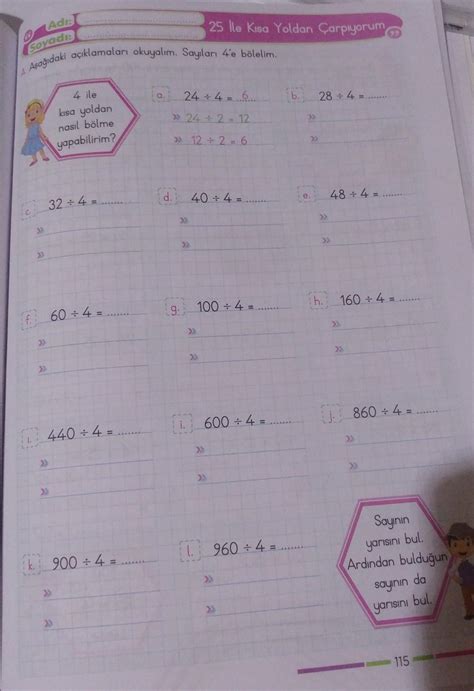 Adı:
Soyadı:
25 İle Kısa Yoldan Çarpıyorum
Aşağıdaki açıklamaları okuyalım. Sayıları 4'e bölelim.
4 ile
kısa yoldan
nasıl bölme
yapabilirim?
a. 24 ÷ 4 = ..6...
» 24 ÷ 2 = 12
» 12 ÷ 2 = 6
b. 28 ÷ 4 = .......
»
»
c. 32 ÷ 4 = .......
»
»
d. 40 ÷ 4 = .......
»
»
e. 48 ÷ 4 = .......
»
»
f. 60 ÷ 4 = .......
»
»
g. 100 ÷ 4 = .......
»
»
h. 160 ÷ 4 = .......
»
»
ı. 440 ÷ 4 = .......
»
»
i. 600 ÷ 4 = .......
»
»
j. 860 ÷ 4 = .......
»
»
k. 900 ÷ 4 = .......
»
»
l. 960 ÷ 4 = .......
»
»
Sayının
yarısını bul.
Ardından bulduğun
sayının da
yarısını bul.
115